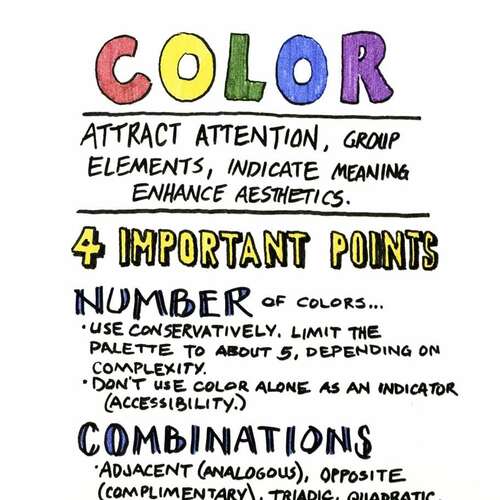 COLOR
ATTRACT ATTENTION, GROUP
ELEMENTS, INDICATE MEANING
ENHANCE AESTHETICS.
4 IMPORTANT POINTS
NUMBER OF COLORS...
•USE CONSERVATIVELY. LIMIT THE
PALETTE TO ABOUT 5, DEPENDING ON
COMPLEXITY.
•DON'T USE COLOR ALONE AS AN INDICATOR
(ACCESSIBILITY.)
COMBINATIONS
•ADJACENT (ANALOGOUS), OPPOSITE
(COMPLIMENTARY), TRIADIC, QUADRATIC,